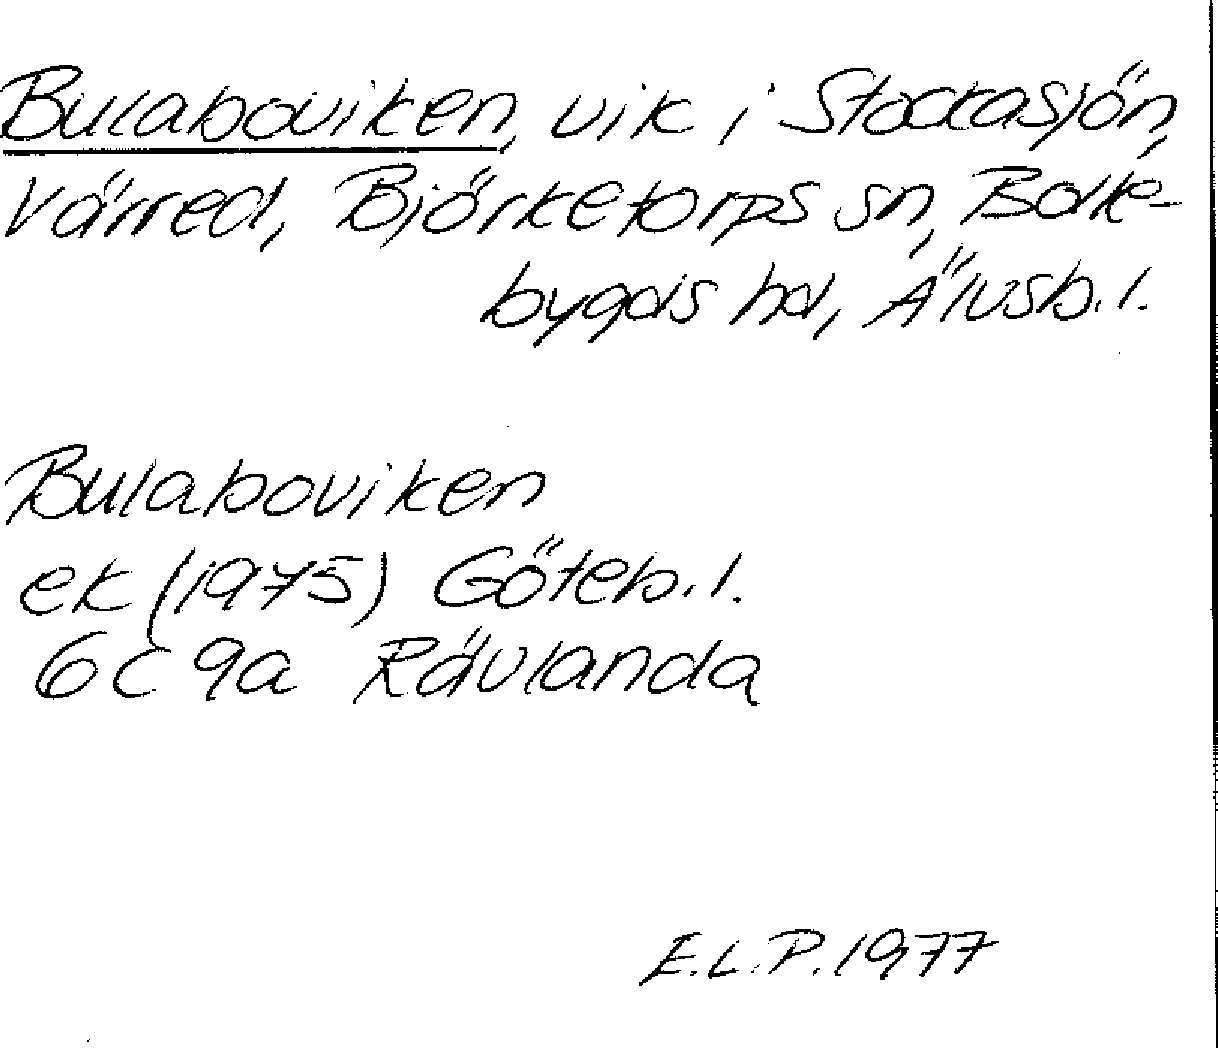 Bulaboviken, vik i Stockasjön,
Värred, Björketorps sn, Bolle-
bygds hd, Älvsb. l.
Bulaboviken
ek (1975) Göteb. l.
6C 9a Rävlanda
E.L.P. 1977